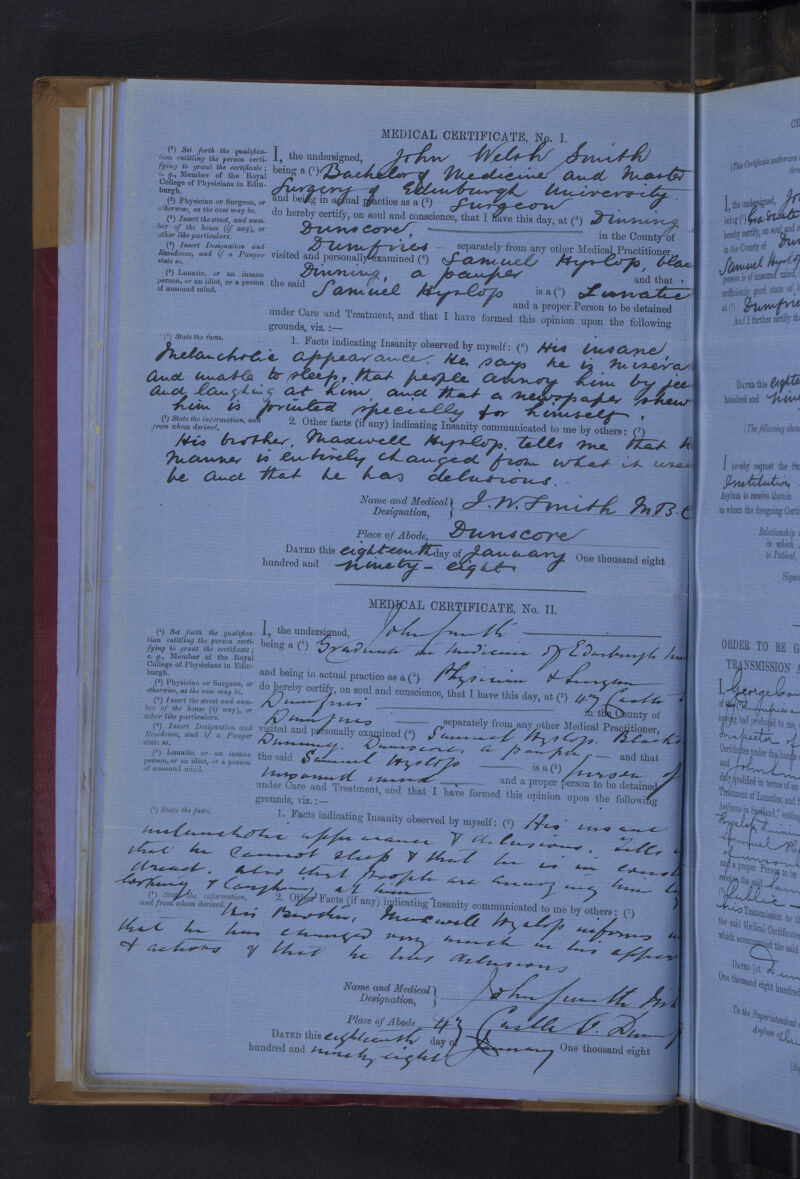 MEDICAL CERTIFICATE, No. I.
(1) Set forth the qualifica-
tion entitling the person certi-
fying to grant the certificate;
e. g., Member of the Royal
College of Physicians in Edin-
burgh.
(2) Physician or Surgeon, or
otherwise, as the case may be.
(3) Insert the street, and num-
ber of the house (if any), or
other like particulars.
(4) Insert Designation and
Residence, and if a Pauper
state so.
(5) Lunatic, or an insane
person, or an idiot, or a person
of unsound mind.
I, the undersigned, John Welsh Smith
being a (1) Bachelor of Medicine and Master
Surgery of Edinburgh University
and being in actual practice as a (2) Surgeon
do hereby certify, on soul and conscience, that I have this day, at (3) Dinning
Dunscore, in the County of
Dumfries separately from any other Medical Practitioner,
visited and personally examined (4) Samuel Hyslop, blac
Dinning, a pauper and that
the said Samuel Hyslop is a (5) Lunatic
and a proper Person to be detained
under Care and Treatment, and that I have formed this opinion upon the following
grounds, viz. :—
(6) State the facts.
1. Facts indicating Insanity observed by myself: (6) His insane,
Melancholic appearance. He says he is misera
and unable to sleep, that people annoy him by
and laughing at him, and that a newspaper shew
him is printed specially for himself.
(7) State the information, and
from whom derived.
2. Other facts (if any) indicating Insanity communicated to me by others: (7)
His brother, Maxwell Hyslop, tells me that h
manner is entirely changed from what it used
be and that he has delusions.
Name and Medical Designation, J. W. Smith M.B.C
Place of Abode, Dunscore
DATED this eighteenth day of January One thousand eight
hundred and ninety-eight
MEDICAL CERTIFICATE, No. II.
(1) Set forth the qualifica-
tion entitling the person certi-
fying to grant the certificate;
e. g., Member of the Royal
College of Physicians in Edin-
burgh.
(2) Physician or Surgeon, or
otherwise, as the case may be.
(3) Insert the street and num-
ber of the house (if any), or
other like particulars.
(4) Insert Designation and
Residence, and if a Pauper
state so.
(5) Lunatic, or an insane
person, or an idiot, or a person
of unsound mind.
I, the undersigned, John Smith
being a (1) Graduate in Medicine of Edinburgh
and being in actual practice as a (2) Physician & Surgeon
do hereby certify, on soul and conscience, that I have this day, at (3) 47 Castle
Dumfries in the County of
Dumfries separately from any other Medical Practitioner,
visited and personally examined (4) Samuel Hyslop. Blacks
Dinning, Dunscore a pauper and that
the said Samuel Hyslop is a (5) person of
unsound mind and a proper person to be detained
under Care and Treatment, and that I have formed this opinion upon the following
grounds, viz. :—
(6) State the facts.
1. Facts indicating Insanity observed by myself: (6) His insane
melancholic appearance & delusions. Tells
that he cannot sleep & that he is in const
dread. also that people are annoying him by
looking & laughing at him
(7) State the information,
and from whom derived.
2. Other Facts (if any) indicating Insanity communicated to me by others; (7)
His Brother, Maxwell Hyslop informs
that he has changed very much in his appear
& actions & that he has delusions
Name and Medical Designation, John Smith
Place of Abode 47 Castle St. Dum
DATED this eighteenth day of January One thousand eight
hundred and ninety eight
(This Certificate authorizes
I, the undersigned,
hereby certify, on soul and
in the County of Dum
Samuel Hyslop
person is of unsound mind,
sufficiently good state of
at Dumfries
And I further certify
DATED this eighte
hundred and nine
(The following
I hereby request the
Institution
Asylum to receive therein
to whom the foregoing Certi
Relationship
in which
to Patient,
ORDER TO BE G
TRANSMISSION
I, George
Inspector of
Certificates under the hands
and John Smi
duly qualified in terms of
Treatment of Lunatics, and
Asylums in Scotland,
Samuel
and a proper Person to be
receive the said Sam
Public
his Transmission to
the said Medical Certificates
which accompanied the said
DATED at Dum
One thousand eight hundred
To the Superintendent
Asylum of